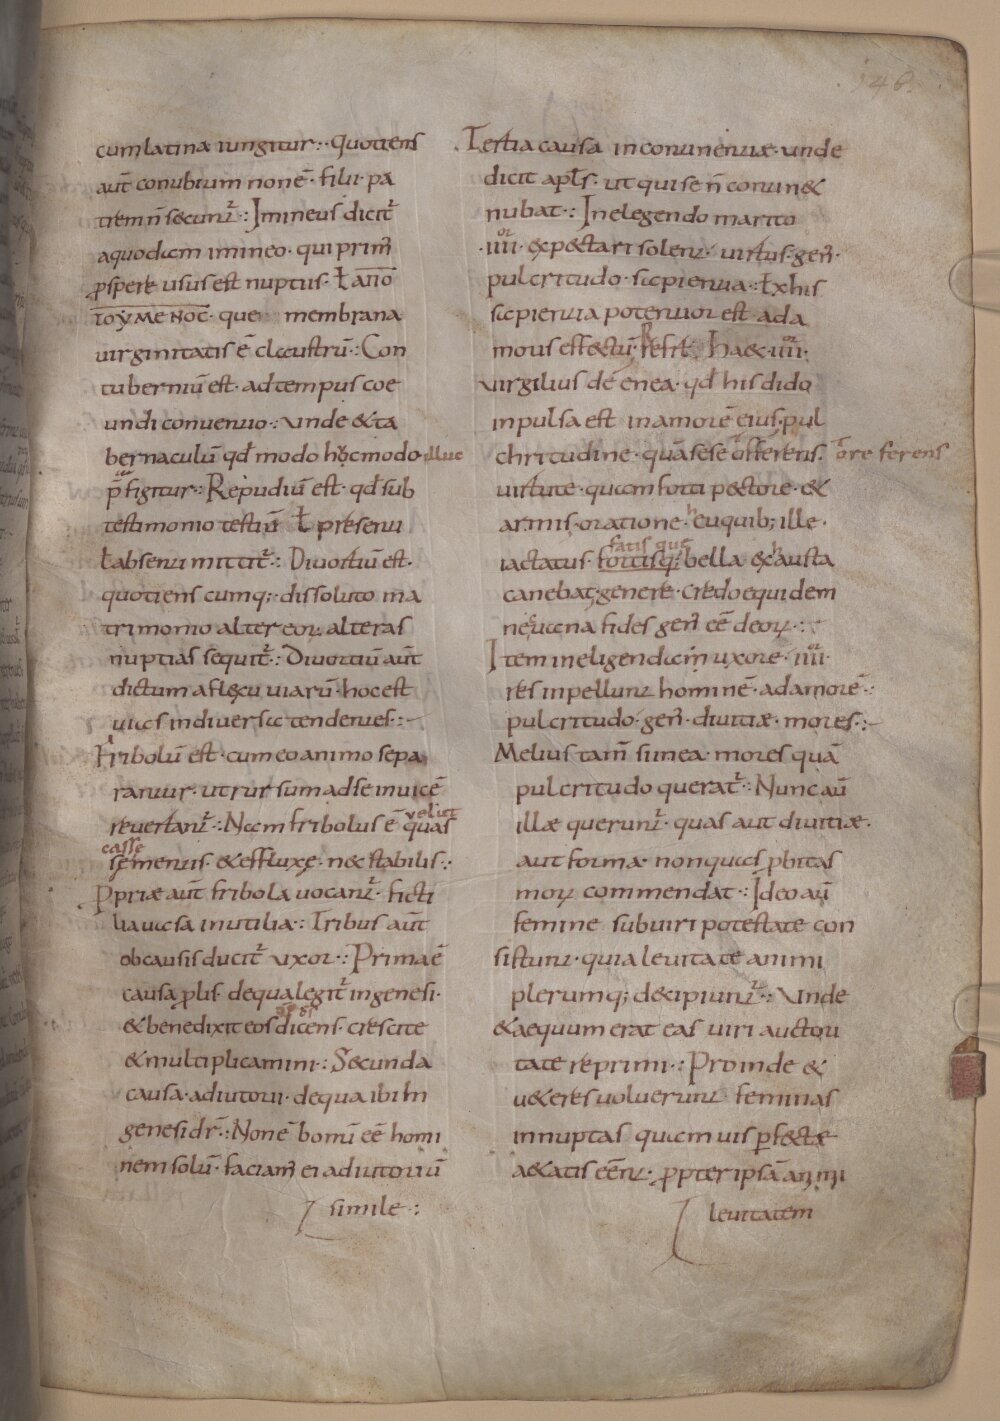 146.
cum latina iungitur :· Quotiens
aut̄ conubium non ē· filii · pa
trem n̄ secunt᷒ :· Imineus dicit᷒
a quod cum imineo · qui prim̄
ꝓspere usus est nuptiis · ƚ ΑΠΟ
ΤΟΥΜΕΝΟC · que membrana
uirginitatis ē claustrū :· Con
tuberniū est · ad tempus coe
undi conuentio :· Unde & ta
bernaculū qd̄ modo hoc modo illuc
p̄figitur :· Repudiū est · qd̄ sub
testimonio testiū ƚ presenti
ƚ absenti mittit᷒ :· Diuortiū est ·
quotiens cumq; · dissoluto ma
trimonio alter eoꝝ alteras
nuptias sequit᷒ :· Diuortiū aut̄
dictum a flexu uiarū · hoc est
uias in diuersa tendentes :·
Fribolū est · cum eo animo sepa
rantur · ut rursum ad se inuicē
reuertant᷒ :· Nam fribolus ē quas
ueliut
casse
se mentis · & effluxe · nec stabilis :·
Ꝓpriae aut̄ fribola uocant᷒ · ficti
lia uasa inutilia :· Tribus aut̄
ob causis ducit᷒ uxor :· Prima ē
causa ꝓlis · de qua legit᷒ in genesi ·
& benedixit eos dicens · crescite
& multiplicamini :· Secunda
causa · adiutorii · de qua ibi in
genesi dr̄ :· Non ē bonū eē homi
nem solū · faciam̄ ei adiutoriū
simile :·
Tertia causa incontinentiæ · unde
dicit apl̄s · ut qui se n̄ contin&
nubat :· In elegendo marito
· iiiior · expectari solent · uirtus · gen̄ ·
pulcritudo · sapientia :· Ex his
sapientia potentior est · ad a
moris effectū · Refert haec · iiiior ·
Uirgilius de enea · qd̄ his dido
inpulsa est in amorē eius · pul
chritudine · quā sese offerens · ore ferens
uirtute · quam forti pectore · &
armis · oratione · heu quib; ille ·
fatis que
iactatus fortisq; bella exhausta
canebat · genere · credo equidem
nec uana fides gen̄ eē deoꝝ :·
Item in eligendam̄ uxore · iiiior
res inpellunt hominē · ad amorē :·
pulcritudo · gen̄ · diuitiæ · mores :·
Melius tam̄ si in ea · mores quā
pulcritudo querat᷒ :· Nunc aū
illæ querunt᷒ · quas aut diuitiæ ·
aut formæ non quas ꝓbitas
moꝝ commendat :· Ideo aū
femine sub uiri potestate con
sistunt · quia leuitate animi
plerumq; decipiunt᷒ :· Unde
& aequum erat eas uiri auctori
tate reprimi :· Proinde &
ueteres uoluerunt feminas
innuptas quamuis ꝑfectæ
aetatis eēnt · ꝓpter ipsā animi
leuitatem